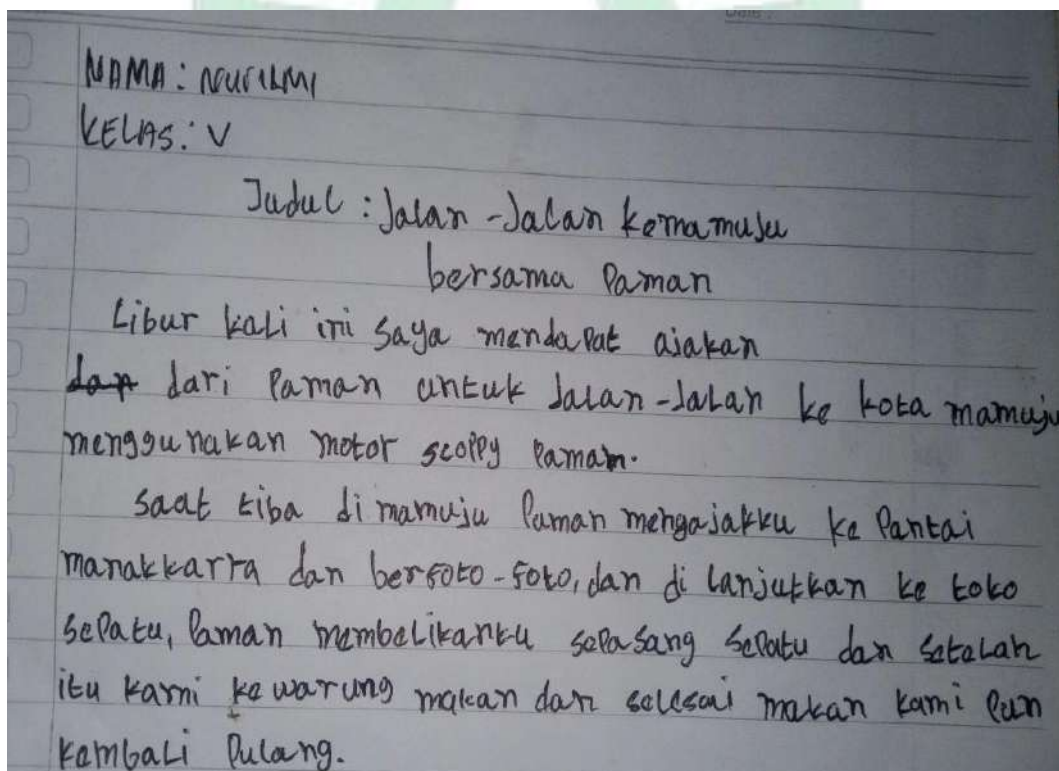 NAMA : NURILMI
KELAS : V
Judul : Jalan-Jalan kemamuju
bersama Paman
Libur kali ini saya mendapat ajakan
dan dari Paman untuk Jalan-Jalan ke kota mamuju
menggunakan motor scoppy Pamam.
saat tiba di mamuju Paman mengajakku ke Pantai
manakkarra dan berfoto-foto, dan di lanjutkan ke toko
sepatu, Paman membelikanku sepasang sepatu dan setelah
itu kami ke warung makan dan selesai makan kami Pun
kembali Pulang.